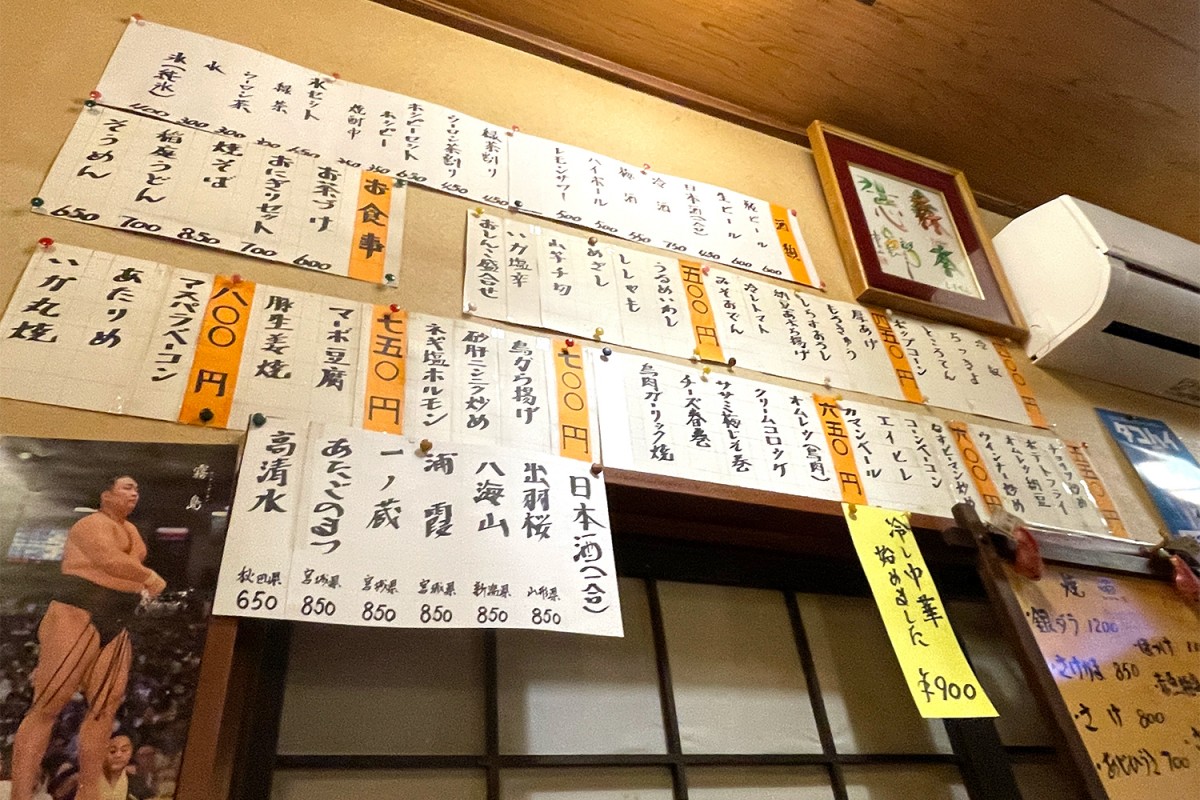 酒類
瓶ビール 600
生ビール 600
日本酒(一合) 450
冷酒 750
梅酒 550
ハイボール 500
レモンサワー 500
緑茶割り 450
ウーロン茶割り 450
ホッピーセット 650
ホッピー
焼酎中
氷セット 650
緑茶
ウーロン茶 300
水 300
氷(純氷) 400
お食事
お茶づけ 600
おにぎりセット 700
焼そば 850
稲庭うどん 700
そうめん 650
冷奴
ところてん
ポップコーン
四五〇円
厚あげ
もろきゅう
しらすおろし
納豆お揚げ
冷しトマト
みそおでん
五〇〇円
うるめいわし
ししゃも
めざし
山芋千切
いか塩辛
おしんこ盛合せ
五五〇円
ポテトフライ
オムレツ納豆
ウインナー炒め
六〇〇円
なすピーマン炒め
コーンベーコン
エイヒレ
カマンベール
六五〇円
オムレツ(鳥肉)
クリームコロッケ
ササミ梅じそ巻
チーズ春巻
鳥肉ガーリック焼
七〇〇円
鳥から揚げ
砂肝ニンニク炒め
ネギ塩ホルモン
七五〇円
マーボ豆腐
豚生姜焼
八〇〇円
アスパラベーコン
あたりめ
いか丸焼
日本酒(一合)
出羽桜 山形県 850
八海山 新潟県 850
浦霞 宮城県 850
一ノ蔵 宮城県 850
あたごのまつ 宮城県 850
高清水 秋田県 650
冷し中華
始めました
¥900
霧島
タコハイ
焼魚
・銀ダラ 1200
・さけかま 850
・さけ 800
・あじひらき 700
ほっけ